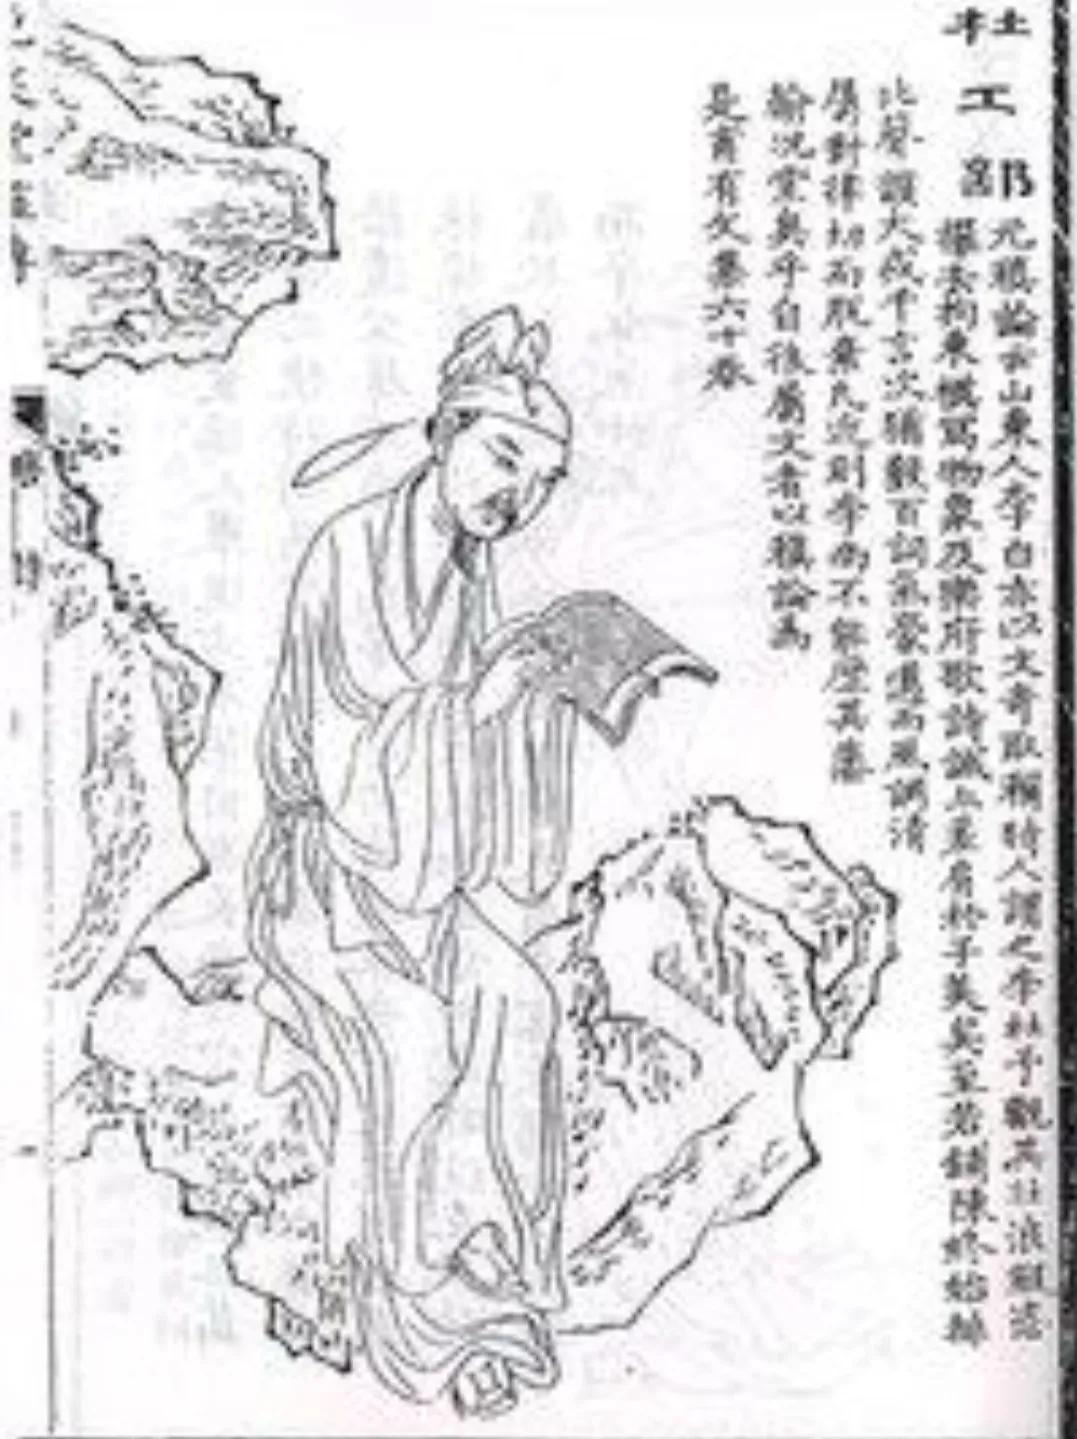 杜工部
元稹論云山東人李白亦以文奇取稱時人謂之李杜予觀其壯浪縱恣
擺去拘束模寫物象及樂府歌詩誠亦差肩於子美矣至若鋪陳終始排
比聲韻大或千言次猶數百詞氣豪邁而風調清
屬對律切而脫棄凡近則李尚不能歷其藩
翰況堂奧乎自後屬文者以稹論為
是甫有文集六十卷